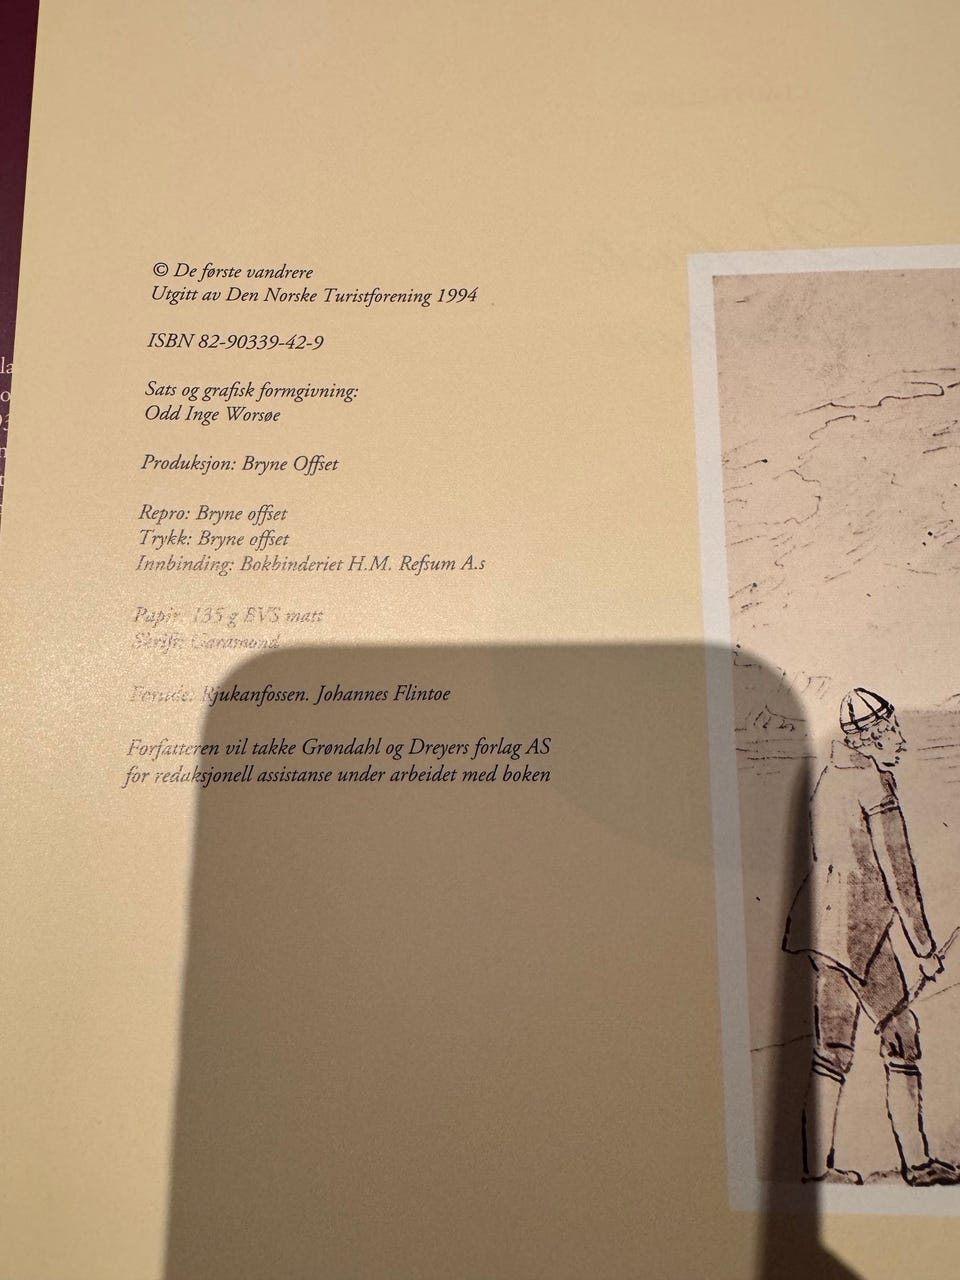 © De første vandrere
Utgitt av Den Norske Turistforening 1994
ISBN 82-90339-42-9
Sats og grafisk formgivning:
Odd Inge Worsøe
Produksjon: Bryne Offset
Repro: Bryne offset
Trykk: Bryne offset
Innbinding: Bokbinderiet H.M. Refsum A.s
Papir: 135 g EVS matt
Skrift: Garamond
Forside: Rjukanfossen. Johannes Flintoe
Forfatteren vil takke Grøndahl og Dreyers forlag AS
for redaksjonell assistanse under arbeidet med boken